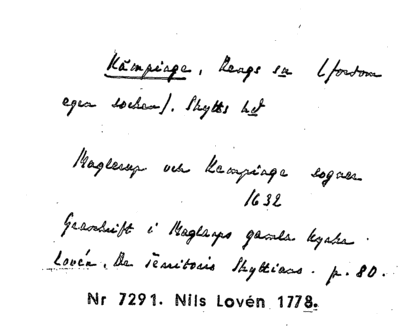 Kämpinge, Rengs sn (fordom
egen socken). Skytts hd
Maglarp och Kempinge sogner
1632
Gravskrift i Maglarps gamla kyrka.
Lovén, De Territorio Skyttiano. p. 80.
Nr 7291. Nils Lovén 1778.